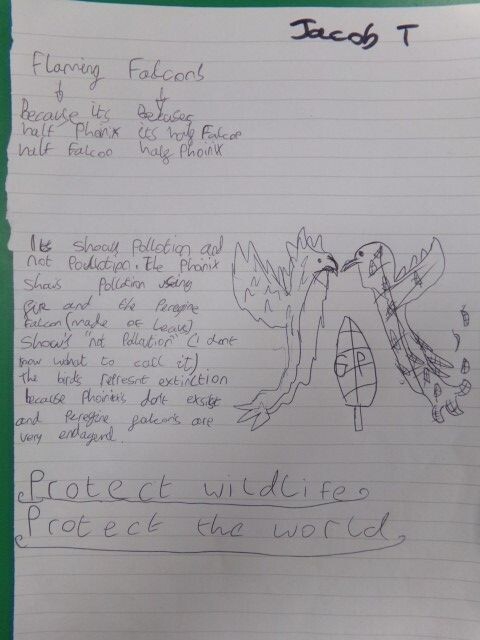 Jacob T
Flaming Falcons
Because its Because
half Phonix its half Falcoo
half Falcoo half Phoinix
Its shows Pollotion and
not Poullotion. The Phonix
shows Pollotion using
fire and the Peregine
falcon (made of leaves)
shows "not Pollotion" (I dont
now what to call it)
the birds represnt extinction
because Phoinixs dont exsist
and Peregine falcons are
very endagerd.
GP
Protect wildlife
Protect the world